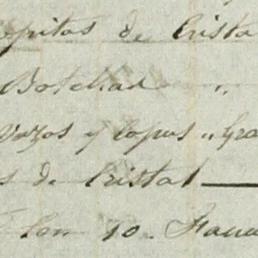 opitas de Crista
Botellas "
Vazos y Copas " Gra
s de Cristal
Con 10.